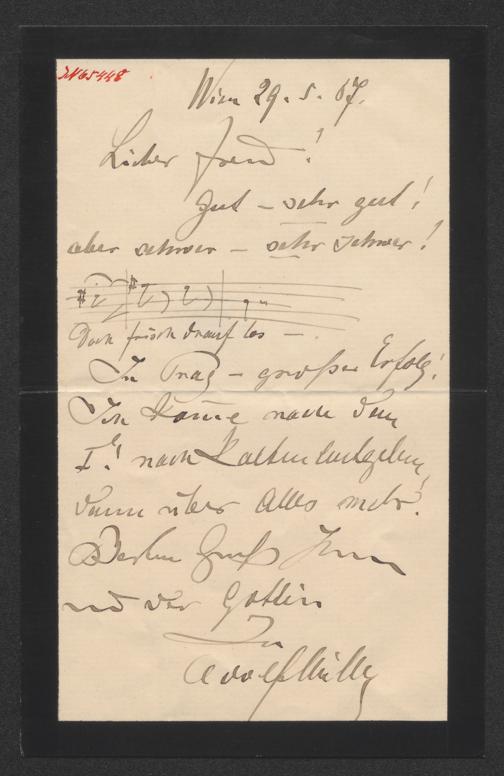 IN 65448
Wien 29. 5. 67.
Lieber Freund!
Gut – sehr gut!
aber schwer – sehr schwer!
Doch frisch drauf los –.
In Prag – großer Erfolg!
Ich komme nach dem
I. nach Kaltenleutgeben,
dann über Alles mehr.
Besten Gruß Ihnen
und der Gattin
Ihr
Adolf Müller